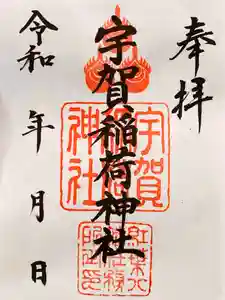 奉拝
宇賀稲荷神社
令和 年 月 日
宇賀
稲荷
神社